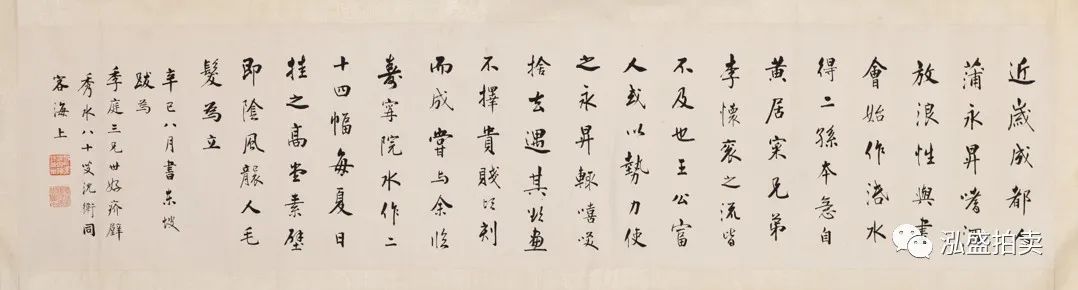 近歲成都人
蒲永昇嗜酒
放浪性與畫
會始作活水
得二孫本意自
黄居寀兄弟
李懷衮之流皆
不及也王公富
人或以勢力使
之永昇輙嘻笑
捨去遇其欲畫
不擇貴賤頃刻
而成嘗与余臨
壽寧院水作二
十四幅每夏日
挂之高堂素壁
即陰風襲人毛
髮為立
辛巳八月書東坡
跋為
季庭三兄世好齋壁
秀水八十叟沈衛同
客海上
泓盛拍卖